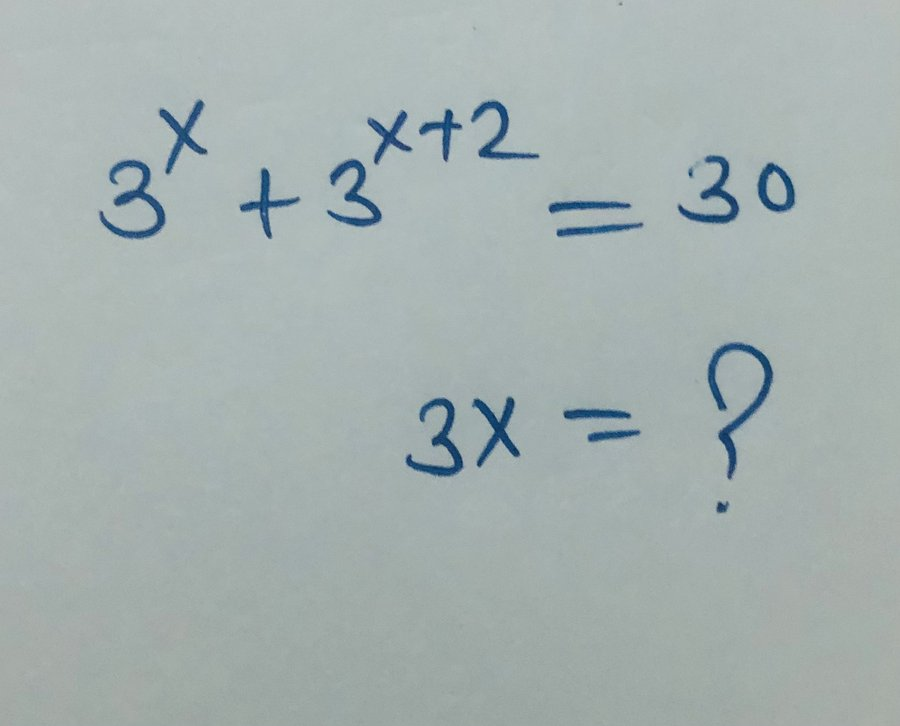 3^x + 3^{x+2} = 30
3x = ?